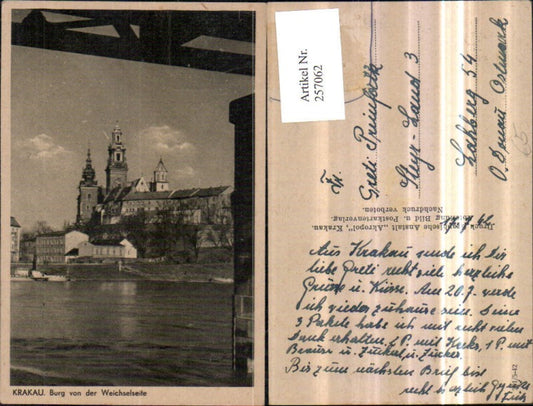 KRAKAU. Burg von der Weichselseite
Artikel Nr.
257062
Fr.
Greti
Steyr-Land 3
54
O. Donau Ostmark
Druck Anstalt „Akropol", Krakau.
Bild u. Postkartenverlag
Nachdruck verboten.
Aus Krakau sende ich Dir
liebe Greti recht viele herzliche
Grüsse u. Küsse. Am 20.7. werde
ich wieder zuhause sein. Deine
3 Pakete habe ich mit recht vielen
Dank erhalten. 1 P. mit Keks, 1 P. mit
u. Zucker.
Bis zum nächsten Brief bist
recht herzlich
Fritz